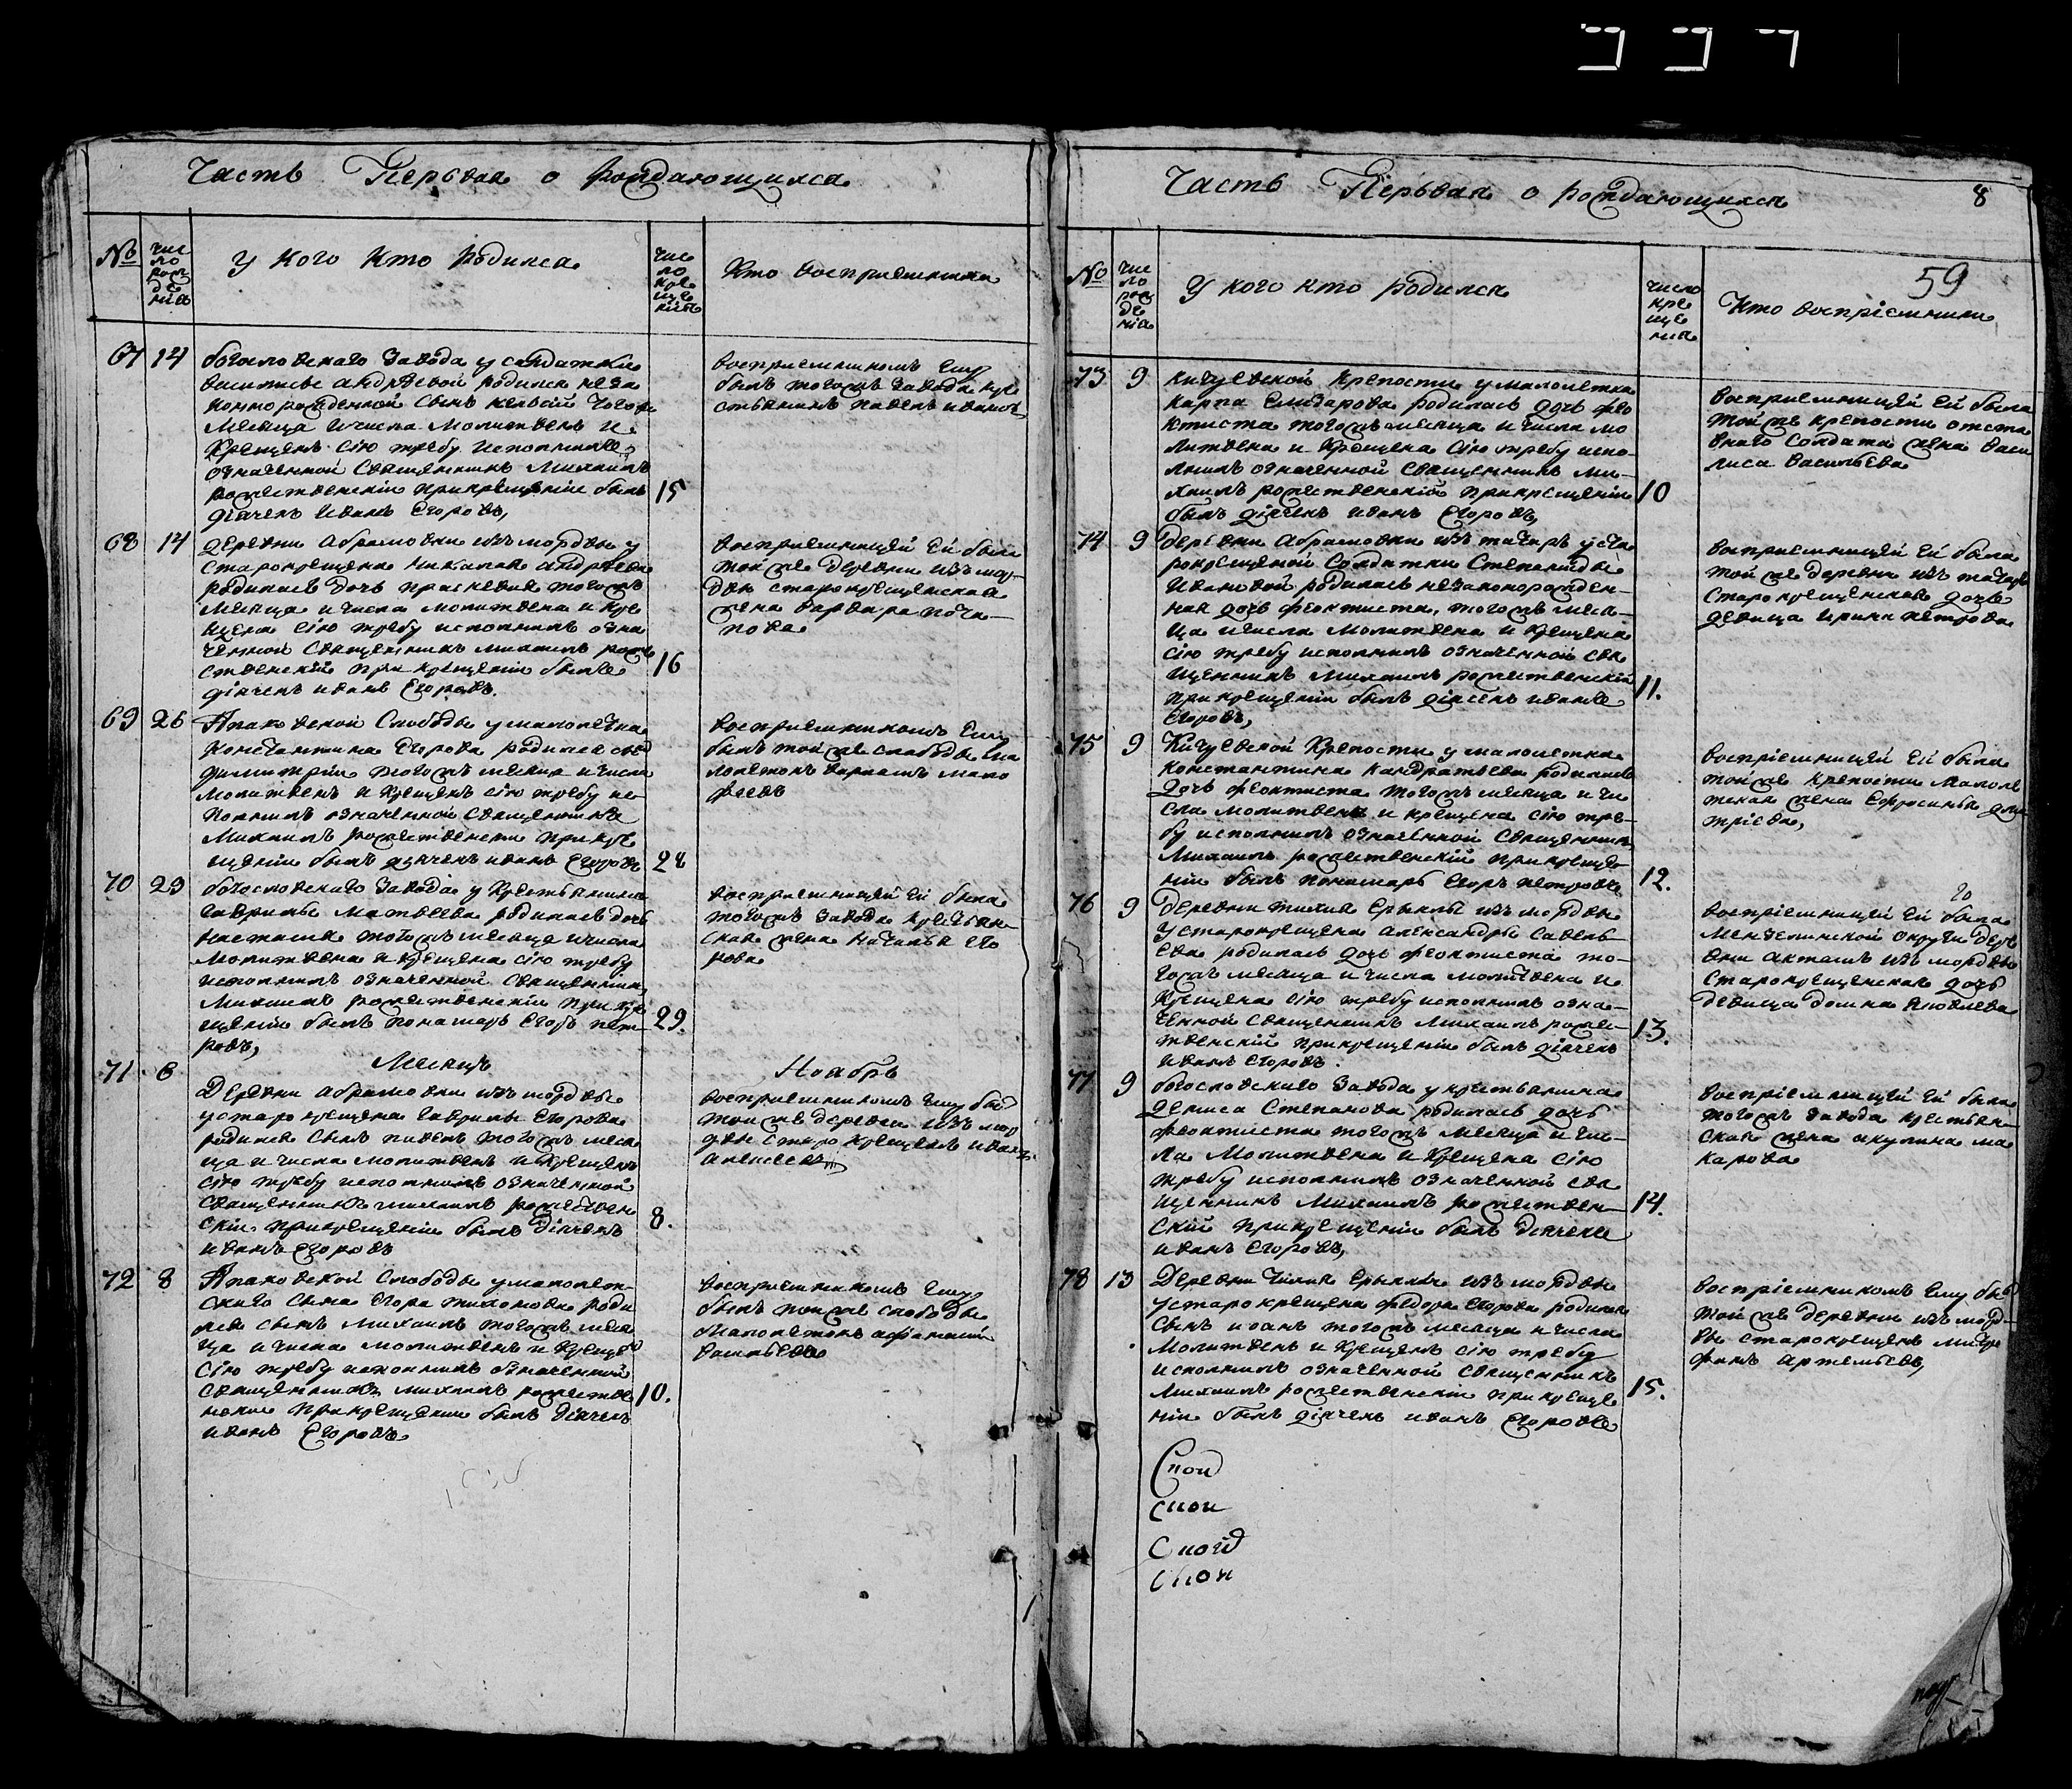 Часть Первая о рождающихся
№
чис
ло
рож
де
нія
у кого кто родился
чис
ло
кре
ще
нія
кто восприемники
67 14
богословскаго Завода у салдатки
василисы андреевой родился неза
конно рожденной сынъ
месяца и числа молитвенъ и
крещенъ сію требу исполнилъ
означенной священникъ михаилъ
рожественскій при крещеніи былъ
діячекъ иванъ Егоровъ,
15
восприемникомъ ему
былъ тогожъ завода кре
стьянинъ павелъ ивановъ
68 14
деревни абрамовки изъ мордвы у
старокрещена николая андреева
родилась дочь праскевия тогожъ
месяца и числа молитвена и кре
щена сію требу исполнилъ озна
ченной священникъ михаилъ роже
ственскій при крещеніи былъ
діячекъ иванъ Егоровъ.
16
восприемницей ей была
той же деревни изъ мор
двы старокрещенская
жена варвара
69 26
слободы у малолетка
константина Егорова родился сынъ
димитрій тогожъ месяца и числа
молитвенъ и крещенъ сію требу ис
полнилъ означенной священникъ
михаилъ рожественски при кре
щеніи былъ діячекъ иванъ Егоровъ
28
восприемникомъ ему
былъ той же слободы ма
лолетокъ
70 29
богословскаго Завода у крестьянина
гаврилы матвеева родилась дочь
настасия тогожъ месяца и числа
молитвена и крещена сію требу
исполнилъ означенной священникъ
михаилъ рожественскіи при кре
щеніи былъ пономарь Егоръ пет
ровъ,
29.
восприемницей ей была
тогожъ завода крестьян
ская жена наталья его
рова
Месяцъ Ноябрь
71 6
Деревни абрамовки изъ мордвы
у старокрещена гаврилы Егорова
родился сынъ павелъ тогожъ меся
ца и числа молитвенъ и крещенъ
сію требу исполнилъ означенной
священникъ михаилъ рожествен
скіи при крещеніи былъ діячекъ
иванъ Егоровъ
8.
восприемникомъ ему былъ
той же деревни изъ мор
двы старокрещенъ иванъ
алексеевъ
72 8
слободы у малолет
скаго сына Егора тихонова роди
лся сынъ михаилъ тогожъ меся
ца и числа молитвенъ и крещенъ
сію требу исполнилъ означенный
священникъ михаилъ рожестве
нские при крещении былъ діячекъ
иванъ Егоровъ
10.
восприемникомъ ему
былъ той же слободы
малолетокъ афанасий
васильевъ
Часть Первая о рождающихся 8
59
№
чис
ло
рож
де
нія
у кого кто родился
число
кре
ще
ния
кто воспріемники
73 9
кичуевской крепости у малолетка
карпа Елизарова родилась дочь фео
ктиста тогожъ месяца и числа мо
литвена и крещена сію требу испо-
лнилъ означенной священникъ ми-
хаилъ рожественскій при крещеніи
былъ діячекъ иванъ Егоровъ,
10
восприемницей ей была
той же крепости отста
внаго солдата жена васи
лиса васильева
74 9
Деревни абрамовки изъ татаръ у ста
рокрещеной солдатки степаниды
ивановой родилась незаконорожден-
ная дочь феоктиста, тогожъ меся-
ца и числа молитвена и крещена
сію требу исполнилъ означенной свя
щенникъ михаилъ рожественскій
при крещеніи былъ діячекъ иванъ
Егоровъ,
11.
восприемницей ей была
той же деревни изъ татаръ
старокрещенская дочь
девица ирина петрова
75 9
Кичуевской крепости у малолетка
константина кандратьева родилась
дочь феоктиста тогожъ месяца и чи
сла молитвена и крещена сію тре-
бу исполнилъ означенной священникъ
михаилъ рожественскій при креще-
ніи былъ пономарь Егоръ петровъ
12.
воспріемницей ей была
той же крепости малоле
тская жена Ефросинья дми
тріева,
76 9
Деревни изъ мордвы
у старокрещена александры савель
ева родилась дочь феоктиста то-
гожъ месяца и числа молитвена и
крещена сію требу исполнилъ озна-
ченной священникъ михаилъ роже-
твенскій при крещеніи былъ діячекъ
иванъ Егоровъ.
13.
воспріемницей ей была
мензелинской округи дере
вни акташъ изъ мордвы
старокрещенская дочь
девица домна яковлева
77 9
богословскаго Завода у крестьянина
дениса степанова родилась дочь
феоктиста тогожъ месяца и чис-
ла молитвена и крещена сію
требу исполнилъ означенной свя
щенникъ михаилъ рожествен-
скій при крещеніи былъ діячекъ
иванъ Егоровъ,
14.
воспріемницей ей была
тогожъ завода крестьян-
ская жена акулина ма
карова
78 13
Деревни изъ мордвы
у старокрещена федора Егорова родился
сынъ иванъ тогожъ месяца и числа
молитвенъ и крещенъ сію требу
исполнилъ означенной священникъ
михаилъ рожественскіи при креще
ніи былъ діячекъ иванъ Егоровъ
15.
воспріемникомъ ему былъ
той же деревни изъ морд-
вы старокрещенъ митро
фанъ артемьевъ,